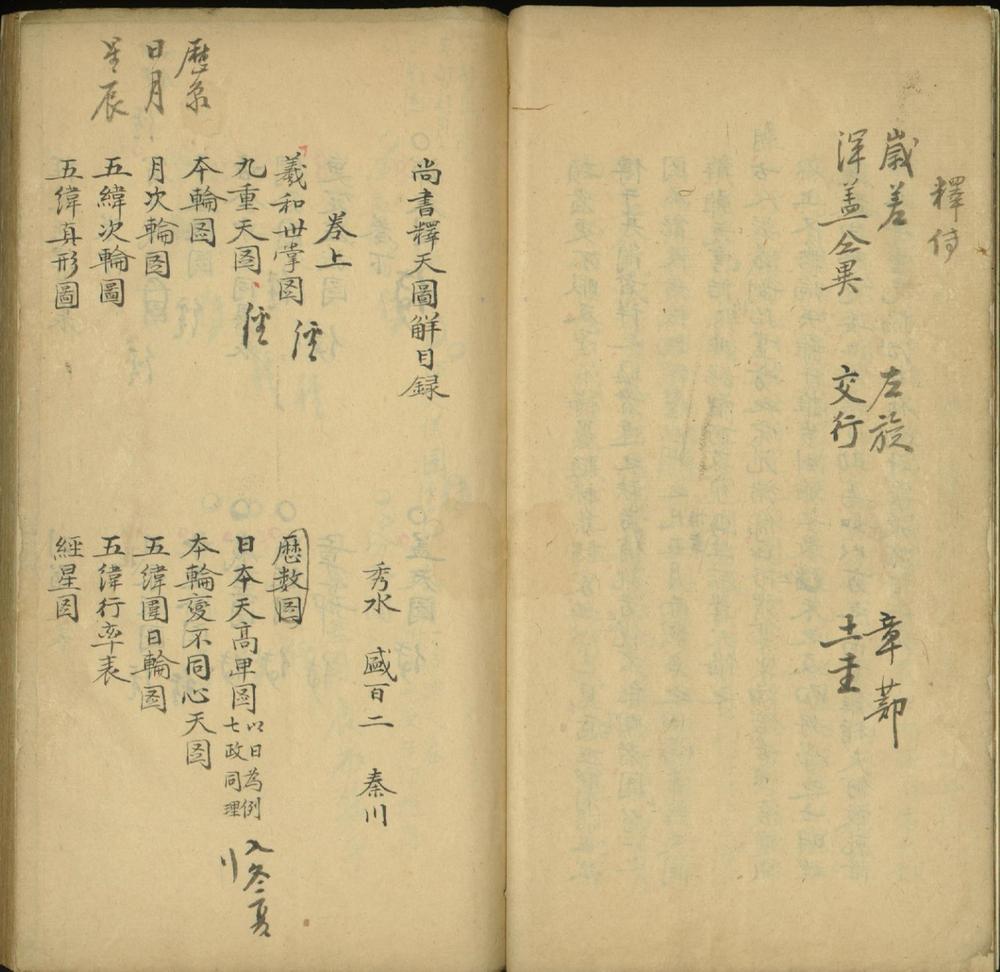 釋付
歲差　左旋　章蔀
渾盖仝異　交行　土圭
尚書釋天圖解目録
秀水　盛百二　秦川
巻上
羲和世掌图　經
歷数图
九重天图　經
日本天高卑图　以日為例七政同理　入冬夏
本輪图
本輪變不同心天图
月次輪图
五緯圍日輪图
五緯次輪圖
五緯行率表
五緯真形圖
經星图
歷象
日月
星辰